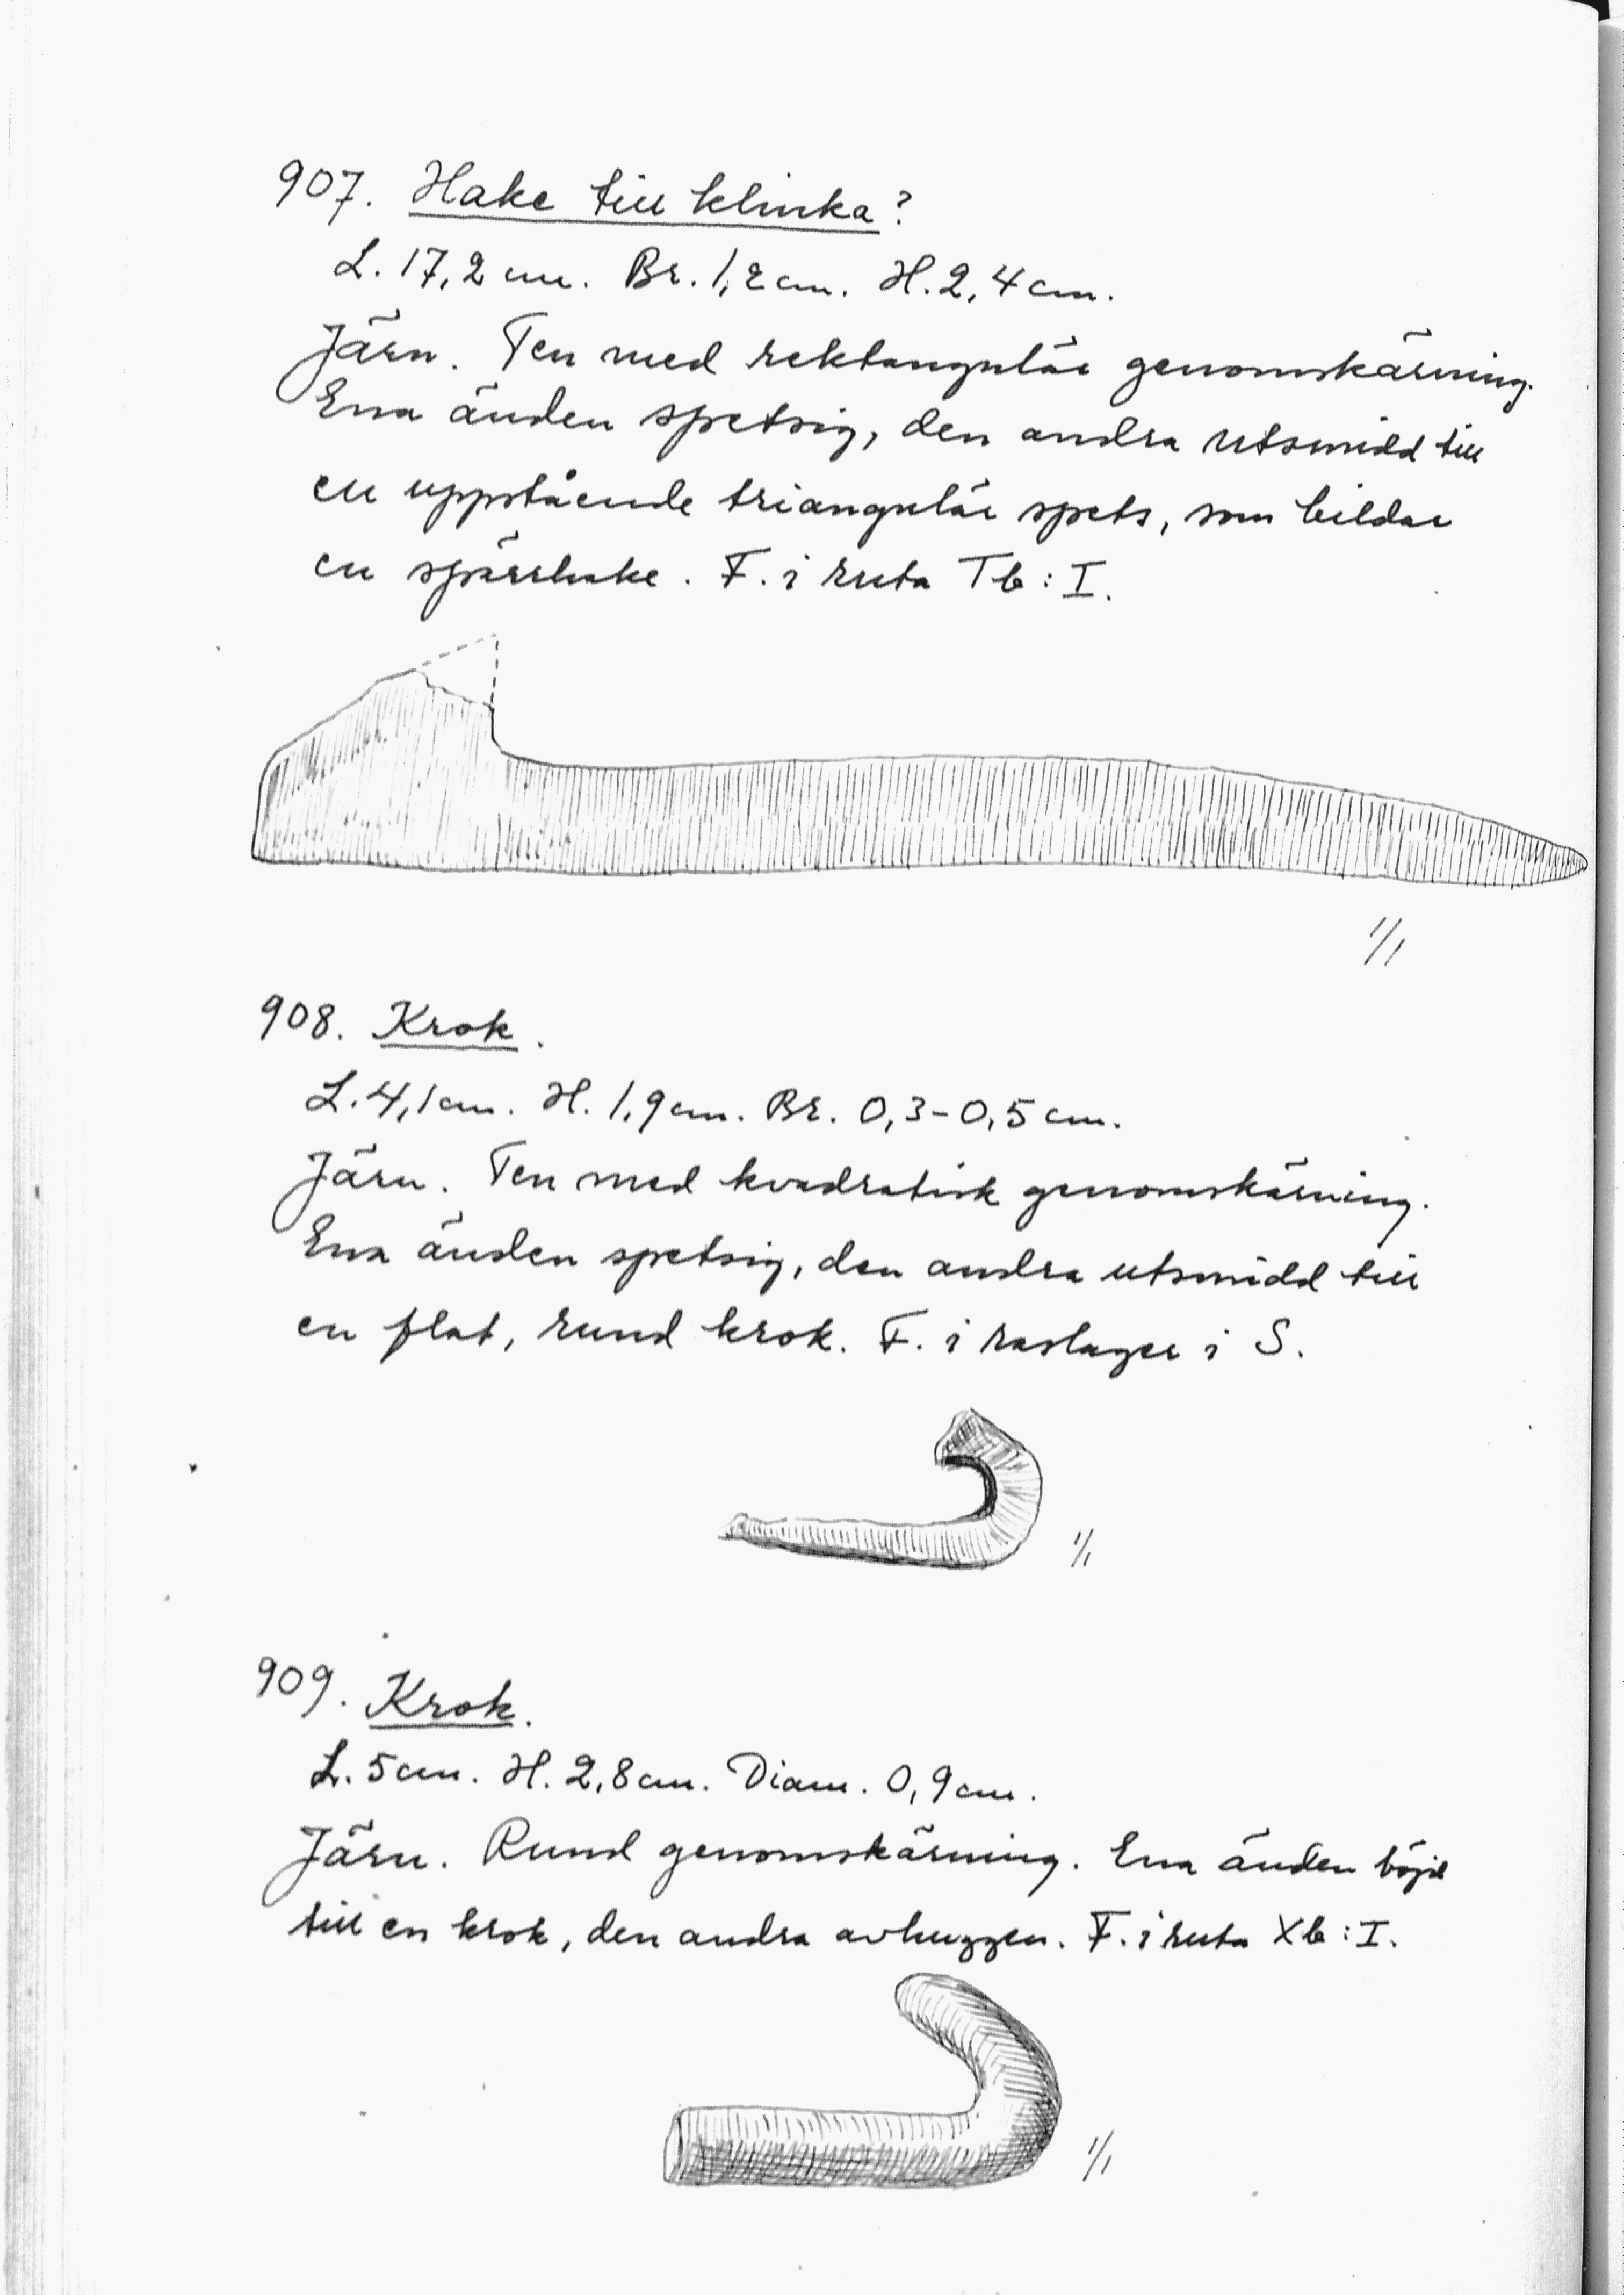 907. Hake till klinka?
L. 17,2 cm. Br. 1,2 cm. H. 2,4 cm.
Järn. Ten med rektangulär genomskärning.
Ena änden spetsig, den andra utsmidd till
en uppstående triangulär spets, som bildar
en spärrhake. F. i ruta Tb: I.
1/1
908. Krok.
L. 4,1 cm. H. 1,9 cm. Br. 0,3-0,5 cm.
Järn. Ten med kvadratisk genomskärning.
Ena änden spetsig, den andra utsmidd till
en flat, rund krok. F. i raslager i S.
1/1
909. Krok.
L. 5 cm. H. 2,8 cm. Diam. 0,9 cm.
Järn. Rund genomskärning. Ena änden böjd
till en krok, den andra avhuggen. F. i ruta Xb: I.
1/1